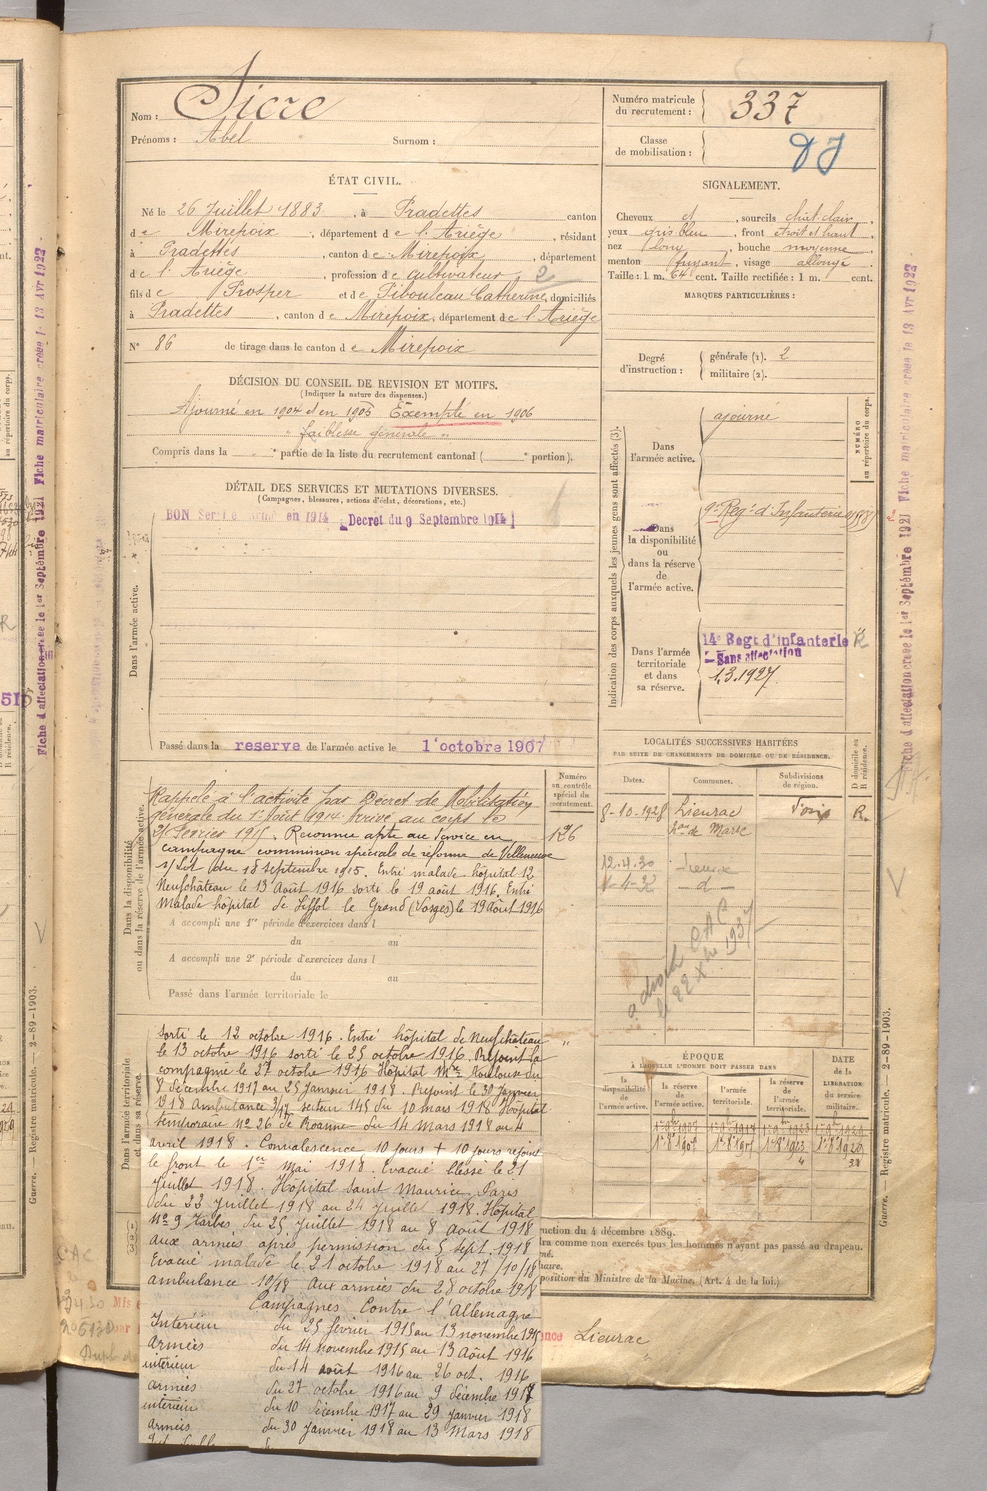 Nom : Sicre
Prénoms : Abel Surnom :
Numéro matricule du recrutement : 337
Classe de mobilisation :
ÉTAT CIVIL.
Né le 26 Juillet 1883, à Pradettes canton
de Mirepoix, département de l'Ariège, résidant
à Pradettes, canton de Mirepoix, département
de l'Ariège, profession de cultivateur, 2
fils de Prosper et de Pibouleau Catherine, domiciliés
à Pradettes, canton de Mirepoix, département de l'Ariège
N° 86 de tirage dans le canton de Mirepoix
SIGNALEMENT.
Cheveux et, sourcils chat. clair,
yeux gris bleu, front étroit et haut
nez long, bouche moyenne
menton fuyant, visage allongé
Taille : 1 m. 64 cent. Taille rectifiée : 1 m. cent.
MARQUES PARTICULIÈRES :
Degré d'instruction : générale (1). 2
militaire (2).
DÉCISION DU CONSEIL DE REVISION ET MOTIFS.
(Indiquer la nature des dispenses.)
Ajourné en 1904 et en 1905 Exempté en 1906
" faiblesse générale "
Compris dans la partie de la liste du recrutement cantonal ( portion).
DÉTAIL DES SERVICES ET MUTATIONS DIVERSES.
(Campagnes, blessures, actions d'éclat, décorations, etc.)
BON Service armé en 1914 Decret du 9 Septembre 1914
Dans l'armée active.
Passé dans la reserve de l'armée active le 1er octobre 1907
Indication des corps auxquels les jeunes gens sont affectés (3).
NUMÉRO au répertoire du corps.
Dans l'armée active.
ajourné
Dans la disponibilité ou dans la réserve de l'armée active.
9e Reg.t d'Infanterie
Dans l'armée territoriale et dans sa réserve.
14e Regt d'infanterie R
Sans affectation
1.3.1927
Dans la disponibilité ou dans la réserve de l'armée active.
Numéro au contrôle spécial du recrutement.
Rappelé à l'activité par Décret de Mobilisation
générale du 1er Août 1914. Arrivé au corps le
25 Février 1915. Reconnu apte au service en
campagne commission spéciale de réforme de Villeneuve
s/Lot du 18 septembre 1915. Entré malade hôpital 12
Neufchâteau le 13 Août 1916 sorti le 19 août 1916. Entré
Malade hôpital de Liffol le Grand (Vosges) le 19 Août 1916
A accompli une 1re période d'exercices dans l
du au
A accompli une 2e période d'exercices dans l
du au
Passé dans l'armée territoriale le
LOCALITÉS SUCCESSIVES HABITÉES
PAR SUITE DE CHANGEMENTS DE DOMICILE OU DE RÉSIDENCE.
Dates. Communes. Subdivisions de région. D domicile ou R résidence.
8-10-1928 Lieurac Foix R.
12.4.30
4-32 d
Dans l'armée territoriale et dans sa réserve.
sorti le 12 octobre 1916. Entré hôpital de Neufchâteau
le 13 octobre 1916 sorti le 25 octobre 1916. Rejoint la
compagnie le 27 octobre 1916 Hôpital Mre Toulouse du
8 décembre 1917 au 25 Janvier 1918. Rejoint le 30 Janvier
1918 Ambulance 3/17 secteur 145 du 10 mars 1918 Hôpital
temporaire No 26 de Roanne du 14 Mars 1918 au 4
avril 1918. Convalescence 10 jours + 10 jours rejoint
le front le 1er Mai 1918. Evacué blessé le 21
Juillet 1918. Hôpital Saint Maurice Paris
du 23 Juillet 1918 au 24 Juillet 1918. Hôpital
No 9 Tarbes du 25 Juillet 1918 au 8 Août 1918
aux armées après permission du 5 sept. 1918
Evacué malade le 21 octobre 1918 au 27/10/18
ambulance 10/8 Aux armées du 28 octobre 1918
Campagnes Contre l'Allemagne
Intérieur du 25 février 1915 au 13 novembre 1915
Armées du 14 novembre 1915 au 13 Août 1916
intérieur du 14 août 1916 au 26 oct. 1916
armées du 27 octobre 1916 au 9 décembre 1917
intérieur du 10 décembre 1917 au 29 Janvier 1918
armées du 30 Janvier 1918 au 13 Mars 1918
ÉPOQUE À LAQUELLE L'HOMME DOIT PASSER DANS
la disponibilité de l'armée active. la réserve de l'armée active. l'armée territoriale. la réserve de l'armée territoriale.
DATE DE LA LIBÉRATION du service militaire.
ruction du 4 décembre 1889.
dra comme non exercés tous les hommes n'ayant pas passé au drapeau.
position du Ministre de la Marine. (Art. 4 de la loi.)
Lieurac
Guerre. — Registre matricule. — 2-89-1903.
Fiche d'affectation créée le 1er Septembre 1921 Fiche matriculaire créée le 13 Avr 1922
Guerre. — Registre matricule. — 2-89-1903.
Fiche d'affectation créée le 1er Septembre 1921 Fiche matriculaire créée le 13 Avr 1922